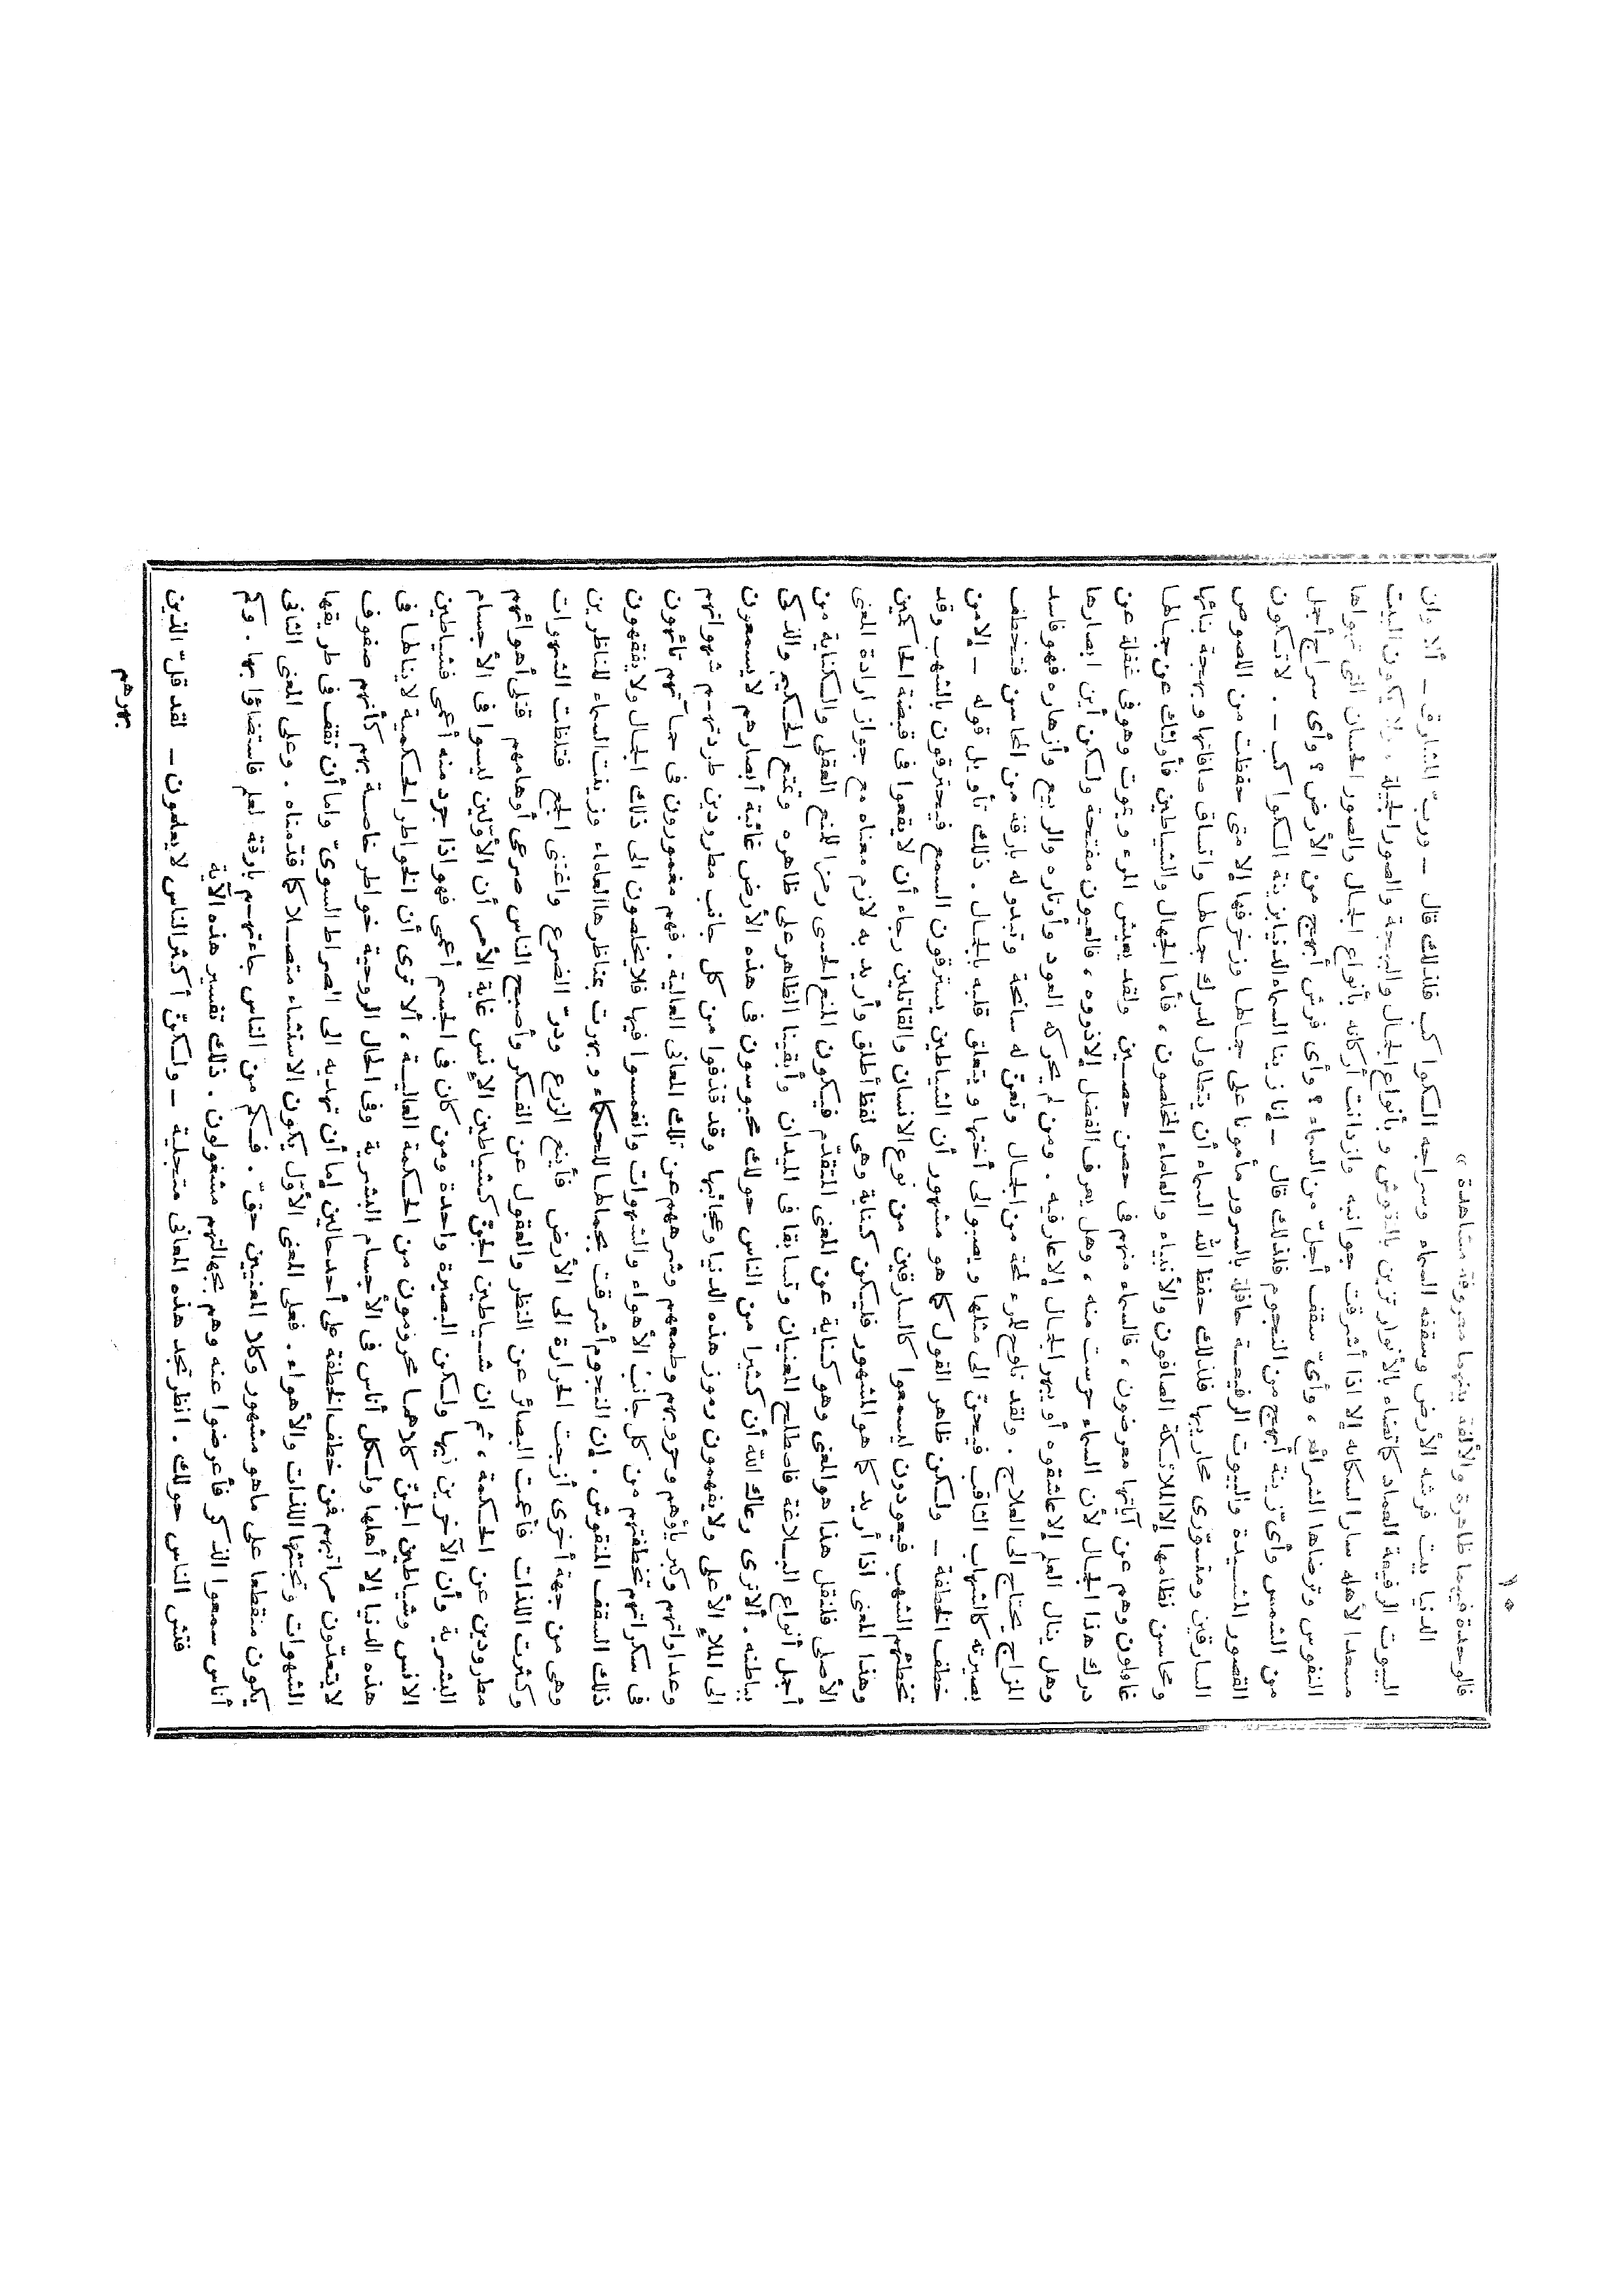 ١٠
فالوحدة فيهما ظاهرة والألفة بينهما معروفة مشاهدة »
الدنيا بيت فرشه الأرض وسقفه السماء وسراجه الكواكب فلذلك قال ــ وربّ المشارق ــ ألا وان
البيوت الرفيعة العماد كالقضاء بالأنوار تزين بالنقوش وبأنواع الجمال والبهجة والصور الجميلة ، ولا يكون البيت
مسعدا لأهله سارا لسكانه إلا اذا أشرقت جوانبه وازدانت أركانه بأنواع الجمال والصور الحسان التي تهواها
النفوس وترضاها السرائر ، وأىّ سقف أجلّ من السماء ؟ وأى فرش أبهج من الأرض ؟ وأى سراج أجل
من الشمس وأىّ زينة أبهج من النجوم فلذلك قال ــ إنا زينا السماء الدنيا بزينة الكواكب ــ . لا تكون
القصور المشيدة والبيوت الرفيعة حافلة بالسرور مأمونا على جمالها وزخرفها إلا متى حفظت من اللصوص
السارقين ومتسوّرى محاريبها فلذلك حفظ الله السماء أن يتطاول لدرك جمالها واتساق صافاتها وبهجة بنائها
ومحاسن نظامها إلا الملائكة الصافون والأنبياء والعلماء المخلصون ، فأما الجهال والشياطين فأولئك عن جمالها
غافلون وهم عن آياتها معرضون ، فالسماء منهم فى حصن حصين ولقد يعيش المرء ويموت وهو فى غفلة عن
درك هذا الجمال لأن السماء حرست منه ، وهل يعرف الفضل إلا ذووه ، فالعيون مفتحة ولكن أين ابصارها
وهل ينال العلم إلا عاشقوه أو يبهر الجمال إلا عارفيه . ومن لم يحركه العود وأوتاره والربيع وأزهاره فهو فاسد
المزاج يحتاج الى العلاج . ولقد تلوح للمرء لمحة من الجمال وتعنّ له سانحة وتبدو له بارقة من المحاسن فتخطف
بصيرته كالشهاب الثاقب فيحنّ الى مثلها ويصبو الى أختها ويتعلق قلبه بالجمال . ذلك تأويل قوله ــ إلا من
خطف الخطفة ــ ولكن ظاهر القول كما هو مشهور أن الشياطين يسترقون السمع فيحترقون بالشهب وقد
تخطئهم الشهب فيعودون ليسمعوا كالسارقين من نوع الانسان والقاتلين رجاء أن لا يقعوا فى قبضة الحاكمين
وهذا المعنى اذا أريد كما هو المشهور فليكن كناية وهى لفظ أطلق وأريد به لازم معناه مع جواز ارادة المعنى
الأصلى فلنقل هذا هو المعنى وهو كناية عن المعنى المتقدّم فيكون المنع الحسى رمزا للمنع العقلى والكناية من
أجل أنواع البلاغة فاصطلح المعنيان وتسابقا فى الميدان وأبقينا الظاهر على ظاهره وتمتع الحكيم والذكى
بباطنه . ألا ترى رعاك الله أن كثيرا من الناس حولك محبوسون فى هذه الأرض غائبة أبصارهم لا يسمعون
الى الملإ الأعلى ولا يفهمون رموز هذه الدنيا وعجائبها وقد قذفوا من كل جانب مطرودين طردتهم شهواتهم
وعداواتهم وكبرياؤهم وحروبهم وطمعهم وشرههم عن تلك المعانى العالية . فهم مغمورون فى حمأتهم تائهون
فى سكراتهم تخطفتهم من كل جانب الأهواء والشهوات وانغمسوا فيها فلا يخلصون الى ذلك الجمال ولا يفقهون
ذلك السقف المنقوش . إن النجوم أشرقت بجمالها للحكماء وبهرت بمناظرها العلماء وزينت السماء للناظرين
وهى من جهة أخرى أزجت الحرارة الى الأرض فأينع الزرع ودرّ الضرع واغتنى الجمع فتلظت الشهوات
وكثرت اللذات فأعمت البصائر عن النظر والعقول عن الفكر وأصبح الناس صرعى أوهامهم قتلى أهوائهم
مطرودين عن الحكمة ، ثم ان شياطين الإنس كشياطين الجنّ غاية الأمر أن الأوّلين ليسوا فى الأجسام
البشرية وأن الآخرين فيها ولكن البصيرة واحدة ومن كان فى الجسم أعمى فهو اذا جرد منه أعمى فشياطين
الانس وشياطين الجنّ كلاهما محرومون من الحكمة العالية ، ألا ترى أن الخواطر الحكمية لا ينالها فى
هذه الدنيا إلا أهلها ولكل أناس فى الأجسام البشرية وفى الحال الروحية خواطر خاصة بهم كأنهم صفوف
لا يتعدّون مراتبهم فمن خطف الخطفة على أحد حالين إما أن تهديه الى الصراط السوىّ واما أن تقف فى طريقها
الشهوات وتجتثها اللذات والأهواء . فعلى المعنى الأوّل يكون الاستثناء متصلا كما قدّمناه . وعلى المعنى الثانى
يكون منقطعا على ما هو مشهور وكلا المعنيين حقّ . فكم من الناس جاءتهم بارقة لعلم فاستضاؤا بها . وكم
أناس سمعوا الذكر فأعرضوا عنه وهم بجهالتهم مشغولون . ذلك تفسير هذه الآية
فتش الناس حولك . انظر تجد هذه المعانى متجلية ــ ولكنّ أكثر الناس لا يعلمون ــ لقد قلّ الذين
بهرهم